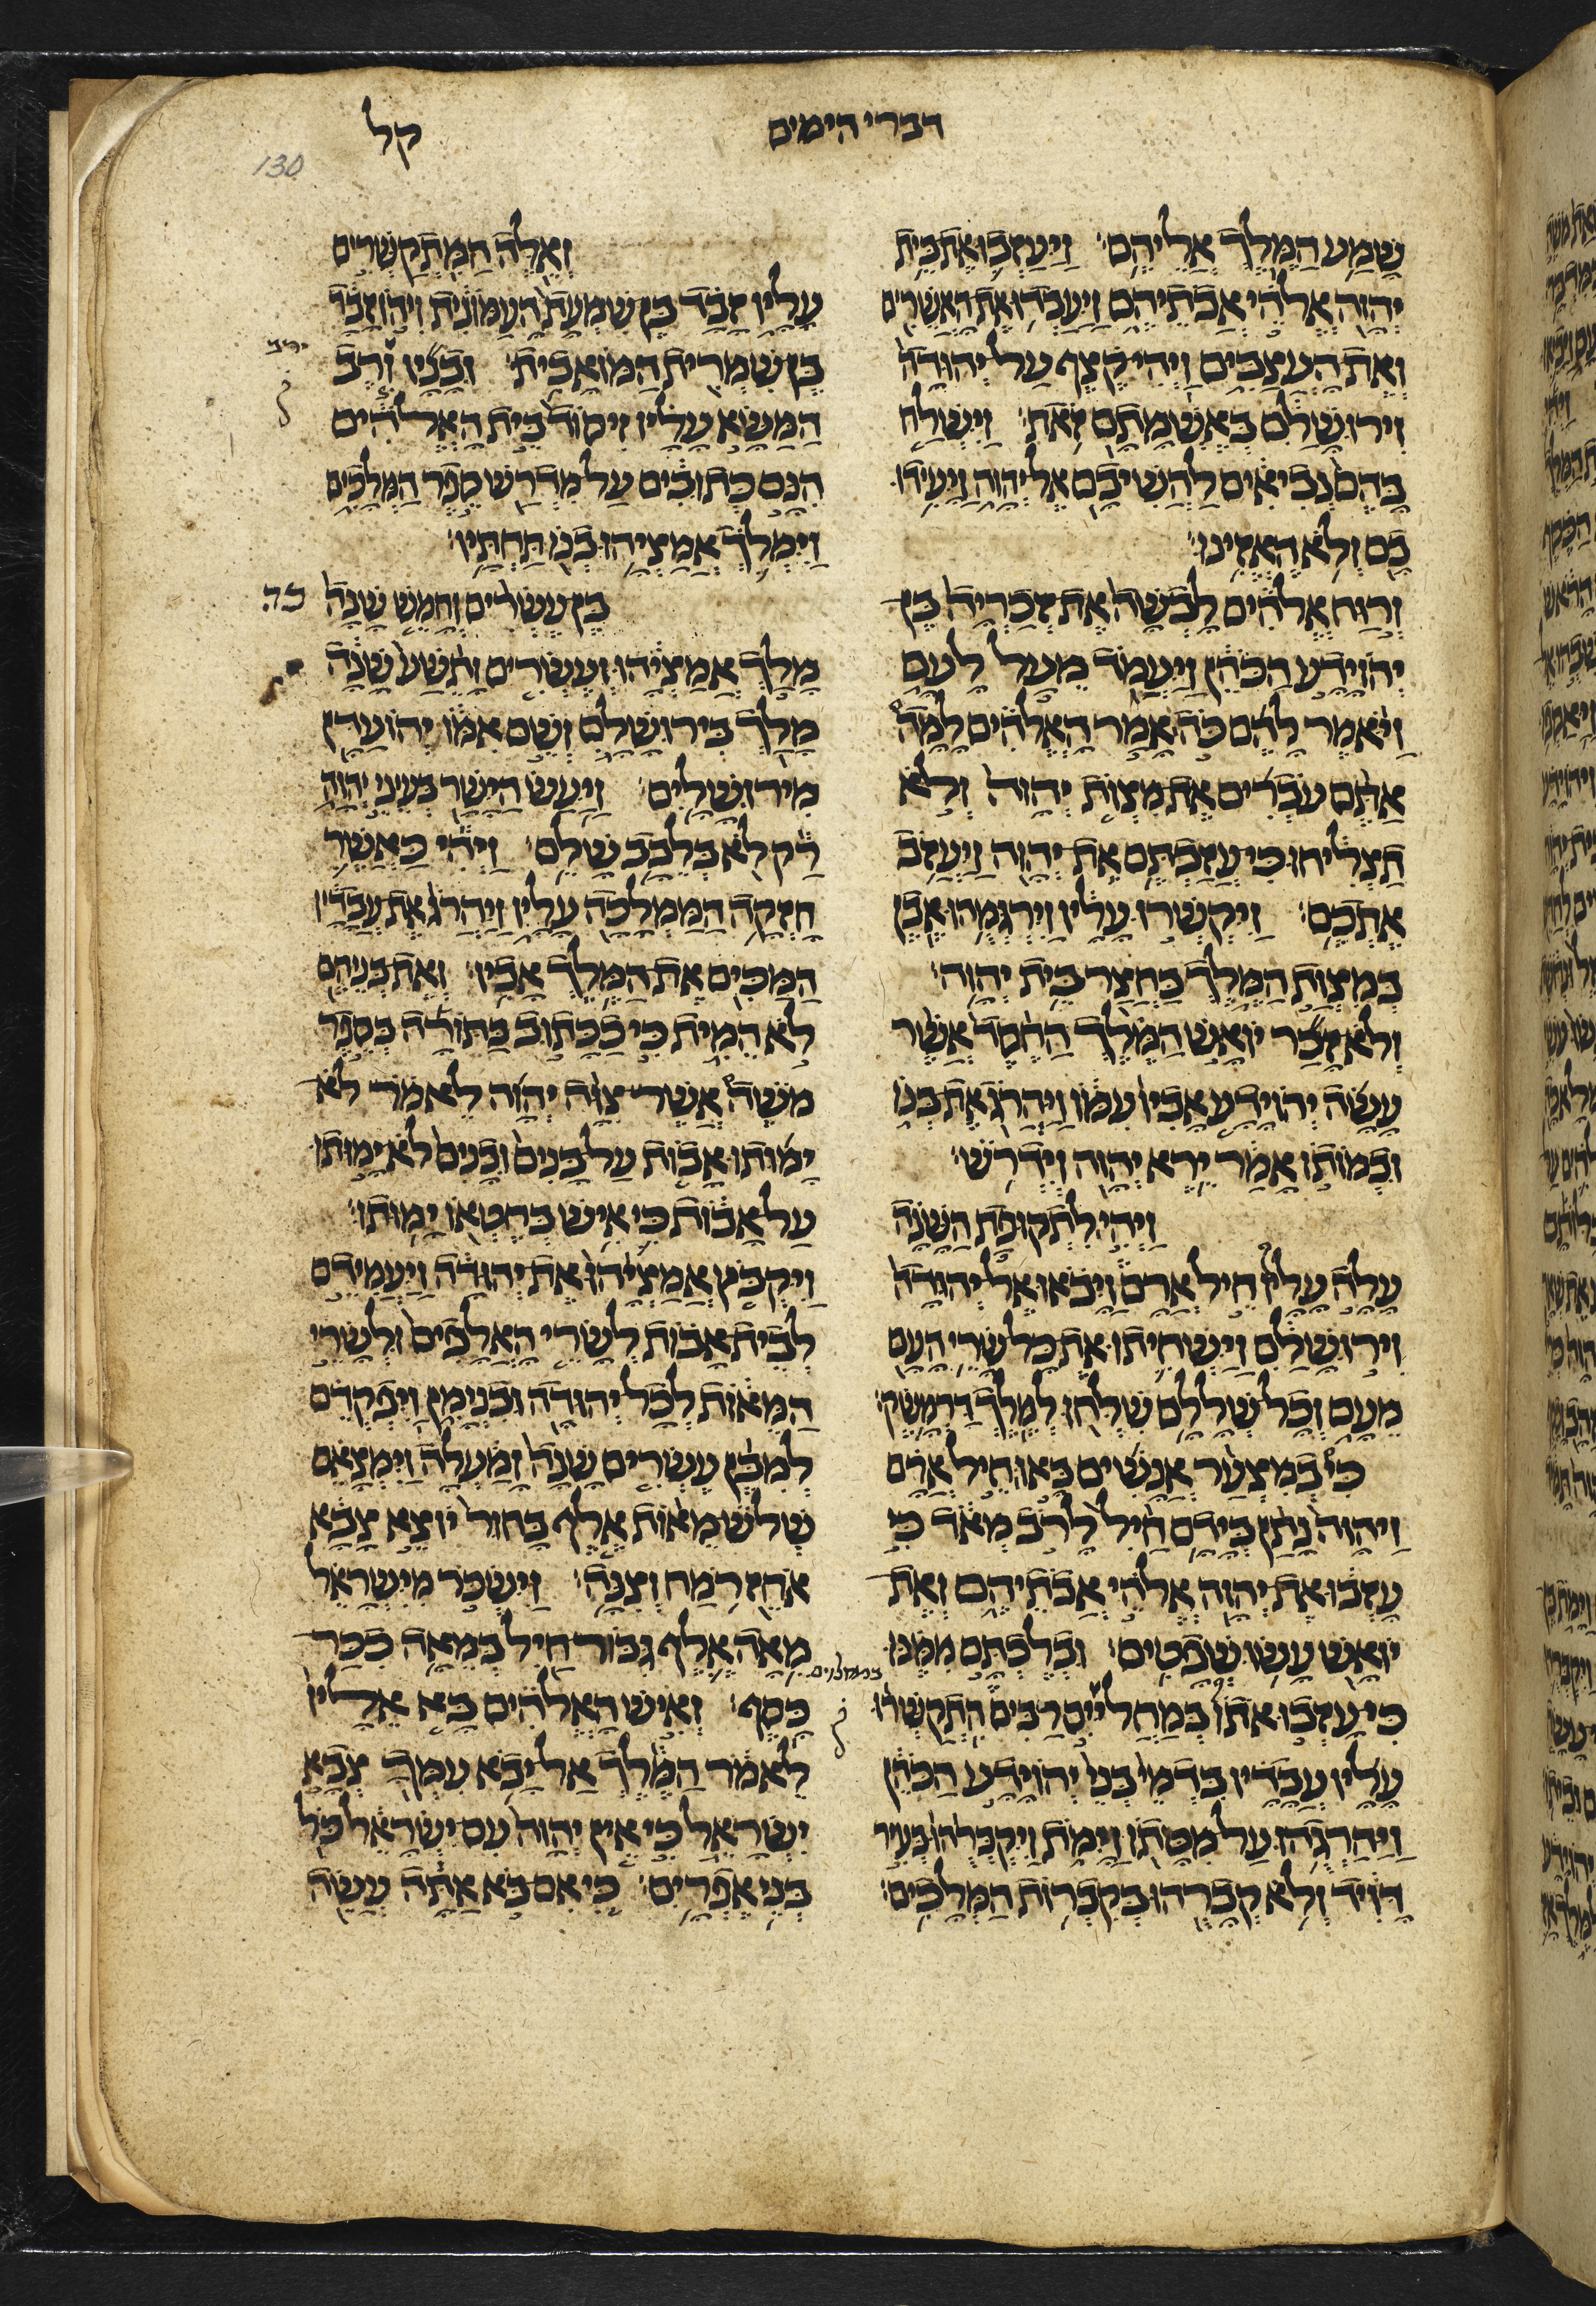 דברי הימים
קל
130
שמע המלך אליהם׃ ויעזבו את בית
יהוה אלהי אבתיהם ויעבדו את האשרים
ואת העצבים ויהי קצף על יהודה
וירושלם באשמתם זאת׃ וישלח
בהם נביאים להשיבם אל יהוה ויעידו
בם ולא האזינו׃
ורוח אלהים לבשה את זכריה בן
יהוידע הכהן ויעמד מעל לעם
ויאמר להם כה אמר האלהים למה
אתם עברים את מצות יהוה ולא
תצליחו כי עזבתם את יהוה ויעזב
אתכם׃ ויקשרו עליו וירגמהו אבן
במצות המלך בחצר בית יהוה׃
ולא זכר יואש המלך החסד אשר
עשה יהוידע אביו עמו ויהרג את בנו
ובמותו אמר ירא יהוה וידרש׃
ויהי לתקופת השנה
עלה עליו חיל ארם ויבאו אל יהודה
וירושלם וישחיתו את כל שרי העם
מעם וכל שללם שלחו למלך דרמשק׃
כי במצער אנשים באו חיל ארם
ויהוה נתן בידם חיל לרב מאד כי
עזבו את יהוה אלהי אבתיהם ואת
יואש עשו שפטים׃ ובלכתם ממנו
כי עזבו אתו במחליים רבים התקשרו
במחלוים
עליו עבדיו בדמי בני יהוידע הכהן
ויהרגהו על מטתו וימת ויקברהו בעיר
דויד ולא קברהו בקברות המלכים׃
ואלה המתקשרים
עליו זבד בן שמעת העמונית ויהוזבד
בן שמרית המואבית׃ ובניו ורב
ירב
המשא עליו ויסוד בית האלהים
הנם כתובים על מדרש ספר המלכים
וימלך אמציהו בנו תחתיו׃
בן עשרים וחמש שנה
כה
מלך אמציהו ועשרים ותשע שנה
מלך בירושלם ושם אמו יהועדן
מירושלים׃ ויעש הישר בעיני יהוה
רק לא בלבב שלם׃ ויהי כאשר
חזקה הממלכה עליו ויהרג את עבדיו
המכים את המלך אביו׃ ואת בניהם
לא המית כי ככתוב בתורה בספר
משה אשר צוה יהוה לאמר לא
ימותו אבות על בנים ובנים לא ימותו
על אבות כי איש בחטאו ימותו׃
ויקבץ אמציהו את יהודה ויעמידם
לבית אבות לשרי האלפים ולשרי
המאות לכל יהודה ובנימן ויפקדם
למבן עשרים שנה ומעלה וימצאם
שלש מאות אלף בחור יוצא צבא
אחז רמח וצנה׃ וישכר מישראל
מאה אלף גבור חיל במאה ככר
כסף׃ ואיש האלהים בא אליו
לאמר המלך אל יבא עמך צבא
ישראל כי אין יהוה עם ישראל כל
בני אפרים׃ כי אם בא אתה עשה